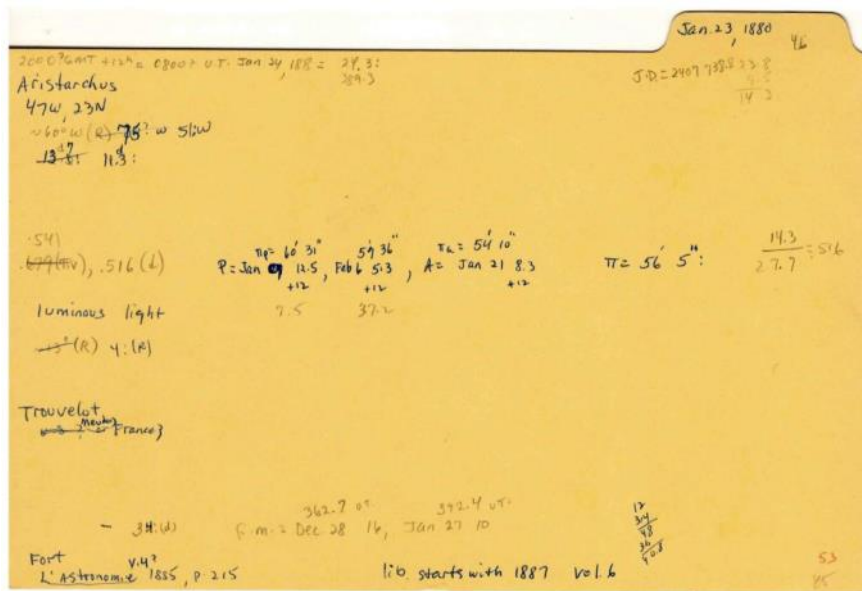 Jan. 23, 1880
46
2000?GMT +12h = 0800? UT. Jan 24, 188 = 24.3:
389.3
J.D. = 2407 738.8 23.8
14.3
Aristarchus
47W, 23N
~60°W (R) 75? W Sl:W
11.3:
.541
.516 (d)
πp = 60' 31" 59' 36" πa = 54' 10"
P = Jan 12.5, Feb 6 5.3, A = Jan 21 8.3
+12 +12 +12
7.5 37.2
π = 56' 5":
14.3
27.7 = .516
luminous light
(R) 4:(R)
Trouvelot
Meudon
France}
362.7 UT 392.4 UT.
- 34:(d) f.m. = Dec 28 16, Jan 27 10
12
34
48
36
408
Fort v.4?
L'Astronomie 1885, p 215
lib. starts with 1887 vol. 6
53
45